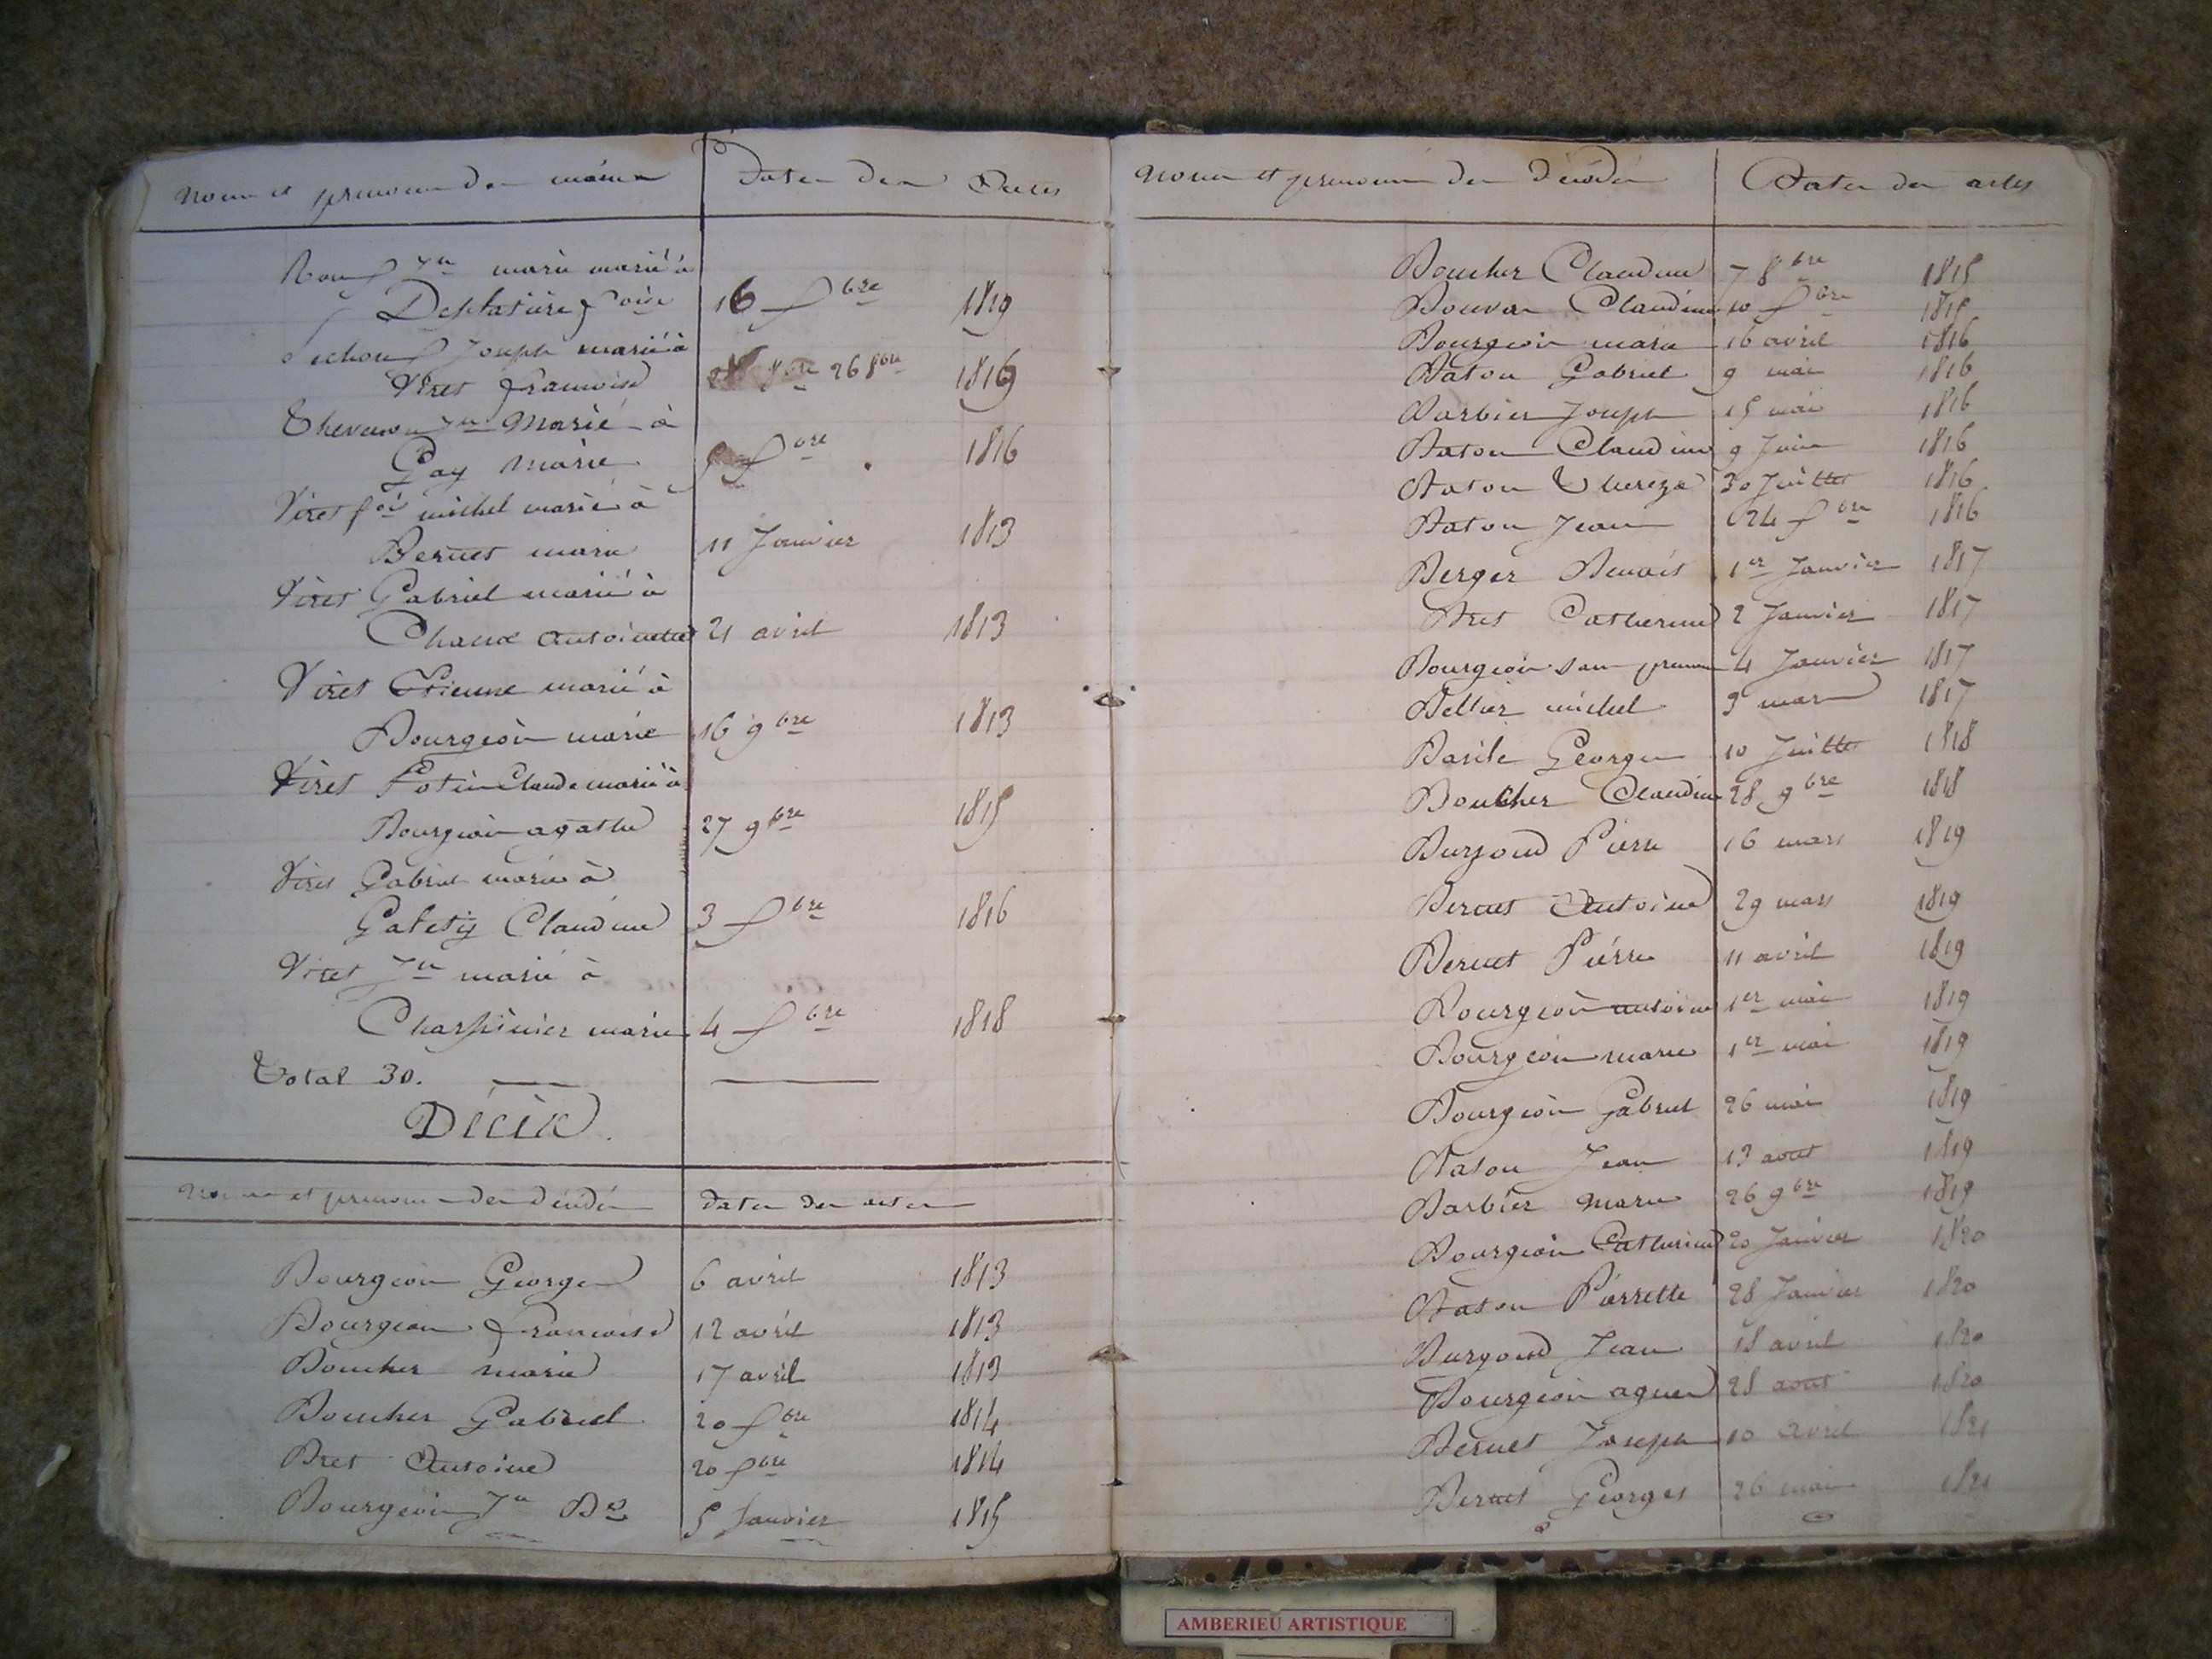 Noms et prenoms des mariés Dates des Actes
Roux Jn marie marié à
Deplatière foise 16 fbre 1819
Pichon Joseph marié à
Viret françoise 26 8bre 1819
Thevenon Jn Marié à
Gay Marie 5 fbre 1816
Viret foi michel marié à
Bernet marie 11 Janvier 1813
Viret Gabriel marié à
Chanæ antoinette 21 avril 1813
Viret Etienne marié à
Bourgeoin marie 16 9bre 1813
Viret Potin Claude marié à
Bourgeoin agathe 27 9bre 1815
Viret Gabriel marié à
Galety Claudine 3 fbre 1816
Viret Jn marié à
Charpinier marie 4 fbre 1818
Total 30.
Décès
Noms et prenoms des décédés dates des actes
Bourgeoin George 6 avril 1813
Bourgeoin françoise 12 avril 1813
Boucher marie 17 avril 1813
Boucher Gabriel 20 fbre 1814
Bret Antoine 20 fbre 1814
Bourgeoin Jn Bte 5 Janvier 1815
Noms et prenoms des décédés Dates des actes
Boucher Claudine 7 8bre 1815
Bouvar Claudine 10 fbre 1815
Bourgeoin marie 16 avril 1816
Baton Gabriel 9 mai 1816
Barbier Joseph 15 mai 1816
Baton Claudine 9 Juin 1816
Baton Thereze 30 Juillet 1816
Baton Jean 24 fbre 1816
Berger Benoit 1er Janvier 1817
Bret Catherine 2 Janvier 1817
Bourgeoin san prenom 4 Janvier 1817
Bellier michel 3 mars 1817
Basile George 10 Juillet 1818
Boucher Claudine 28 9bre 1818
Burgoud Pierre 16 mars 1819
Bernet Antoine 29 mars 1819
Bernet Pierre 11 avril 1819
Bourgeoin antoine 1er mai 1819
Bourgeoin marie 1er mai 1819
Bourgeoin Gabriel 26 mai 1819
Baton Jean 13 aout 1819
Barbier Marie 26 9bre 1819
Bourgeoin Catherine 20 Janvier 1820
Baton Pierrette 28 Janvier 1820
Burgoud Jean 18 avril 1820
Bourgeoin agnes 28 aout 1820
Bernet Joseph 10 Avril 1821
Bernet Georges 26 mai 1821
AMBERIEU ARTISTIQUE